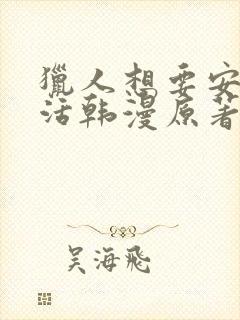 獵人想要安
活韩漫原著
吴海飛